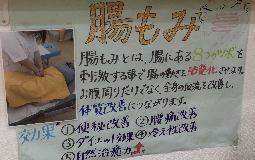 腸もみ
腸もみとは、腸にある8つのツボを
刺激する事で腸の動きを活発化させます。
お腹周りだけでなく全身の血流を改善し、
体質改善につながります。
効果
①便秘改善 ②腰痛改善
③ダイエット効果 ④冷え性改善
⑤自然治癒力